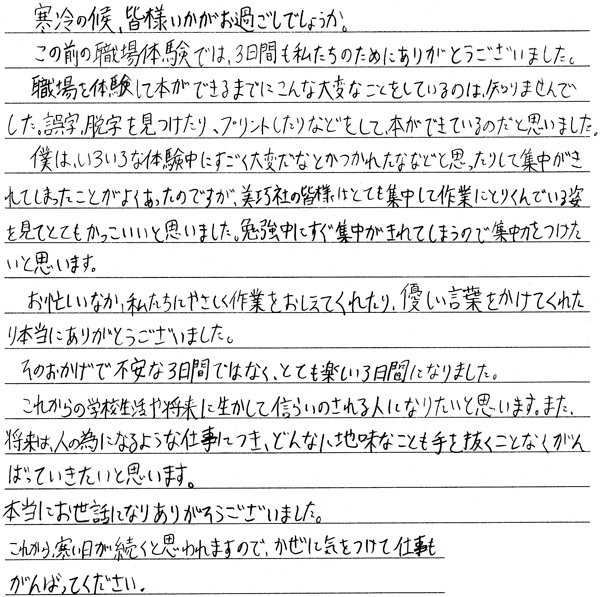 寒冷の候、皆様いかがお過ごしでしょうか。
この前の職場体験では、3日間も私たちのためにありがとうございました。
職場を体験して本ができるまでにこんな大変なことをしているのは、知りませんで
した。誤字、脱字を見つけたり、プリントしたりなどをして、本ができているのだと思いました。
僕は、いろいろな体験中にすごく大変だなとかつかれたななどと思ったりして集中がき
れてしまったことがよくあったのですが、美巧社の皆様はとても集中して作業にとりくんでいる姿
を見てとてもかっこいいと思いました。勉強中にすぐ集中がきれてしまうので集中力をつけた
いと思います。
お忙しいなか、私たちにやさしく作業をおしえてくれたり、優しい言葉をかけてくれた
り本当にありがとうございました。
そのおかげで不安な3日間ではなく、とても楽しい3日間になりました。
これからの学校生活や将来に生かして信らいのされる人になりたいと思います。また、
将来は、人の為になるような仕事につき、どんなに地味なことも手を抜くことなくがん
ばっていきたいと思います。
本当にお世話になりありがとうございました。
これから、寒い日が続くと思われますので、かぜに気をつけて仕事も
がんばってください。